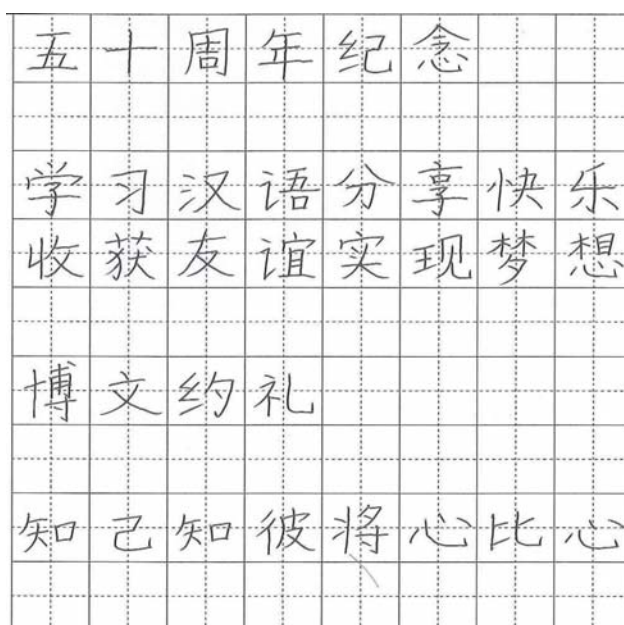 五十周年纪念
学习汉语分享快乐
收获友谊实现梦想
博文约礼
知己知彼将心比心